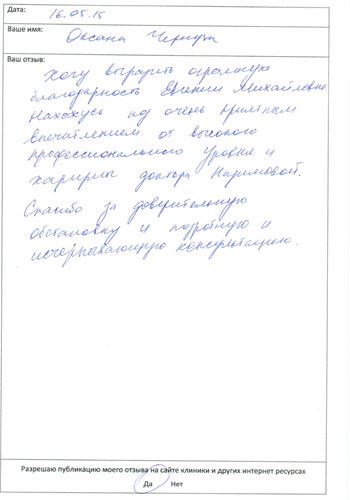 Дата: 16.05.15
Ваше имя: Оксана
Ваш отзыв:
Хочу выразить огромную
благодарность Евгении Михайловне
Нахожусь под очень приятным
впечатлением от высокого
профессионального уровня и
харизмы доктора Наримовой.
Спасибо за доверительную
обстановку и подробную и
исчерпывающую консультацию.
Разрешаю публикацию моего отзыва на сайте клиники и других интернет ресурсах
Да Нет